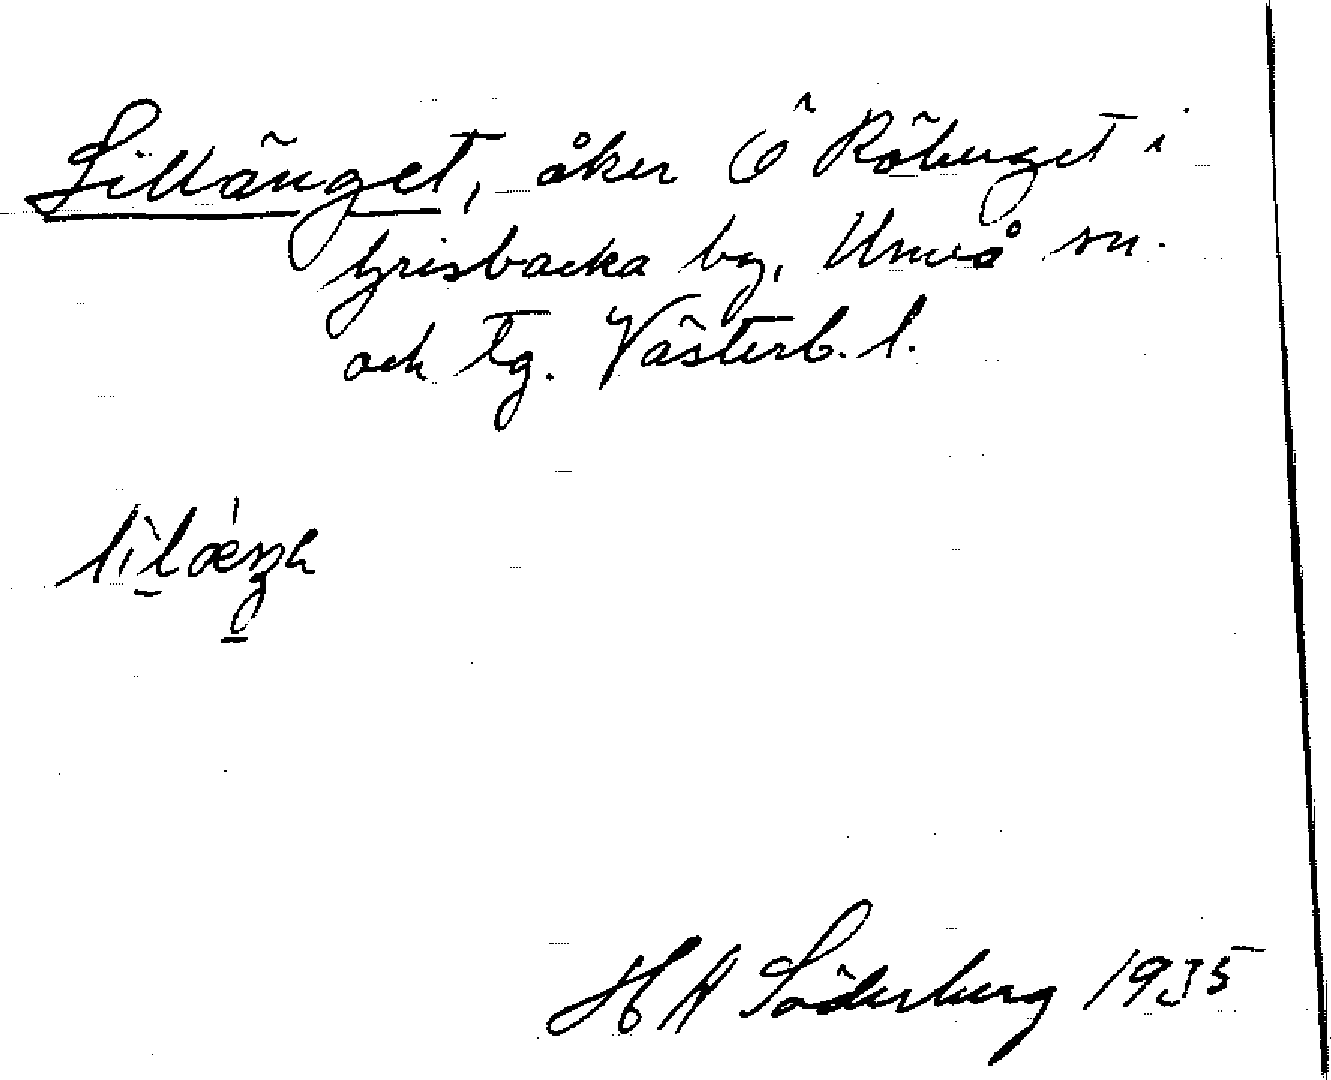 Lillänget, åker Ö Röberget i
Grisbacka by, Umeå sn.
och tg. Västerb. l.
H A Söderberg 1935